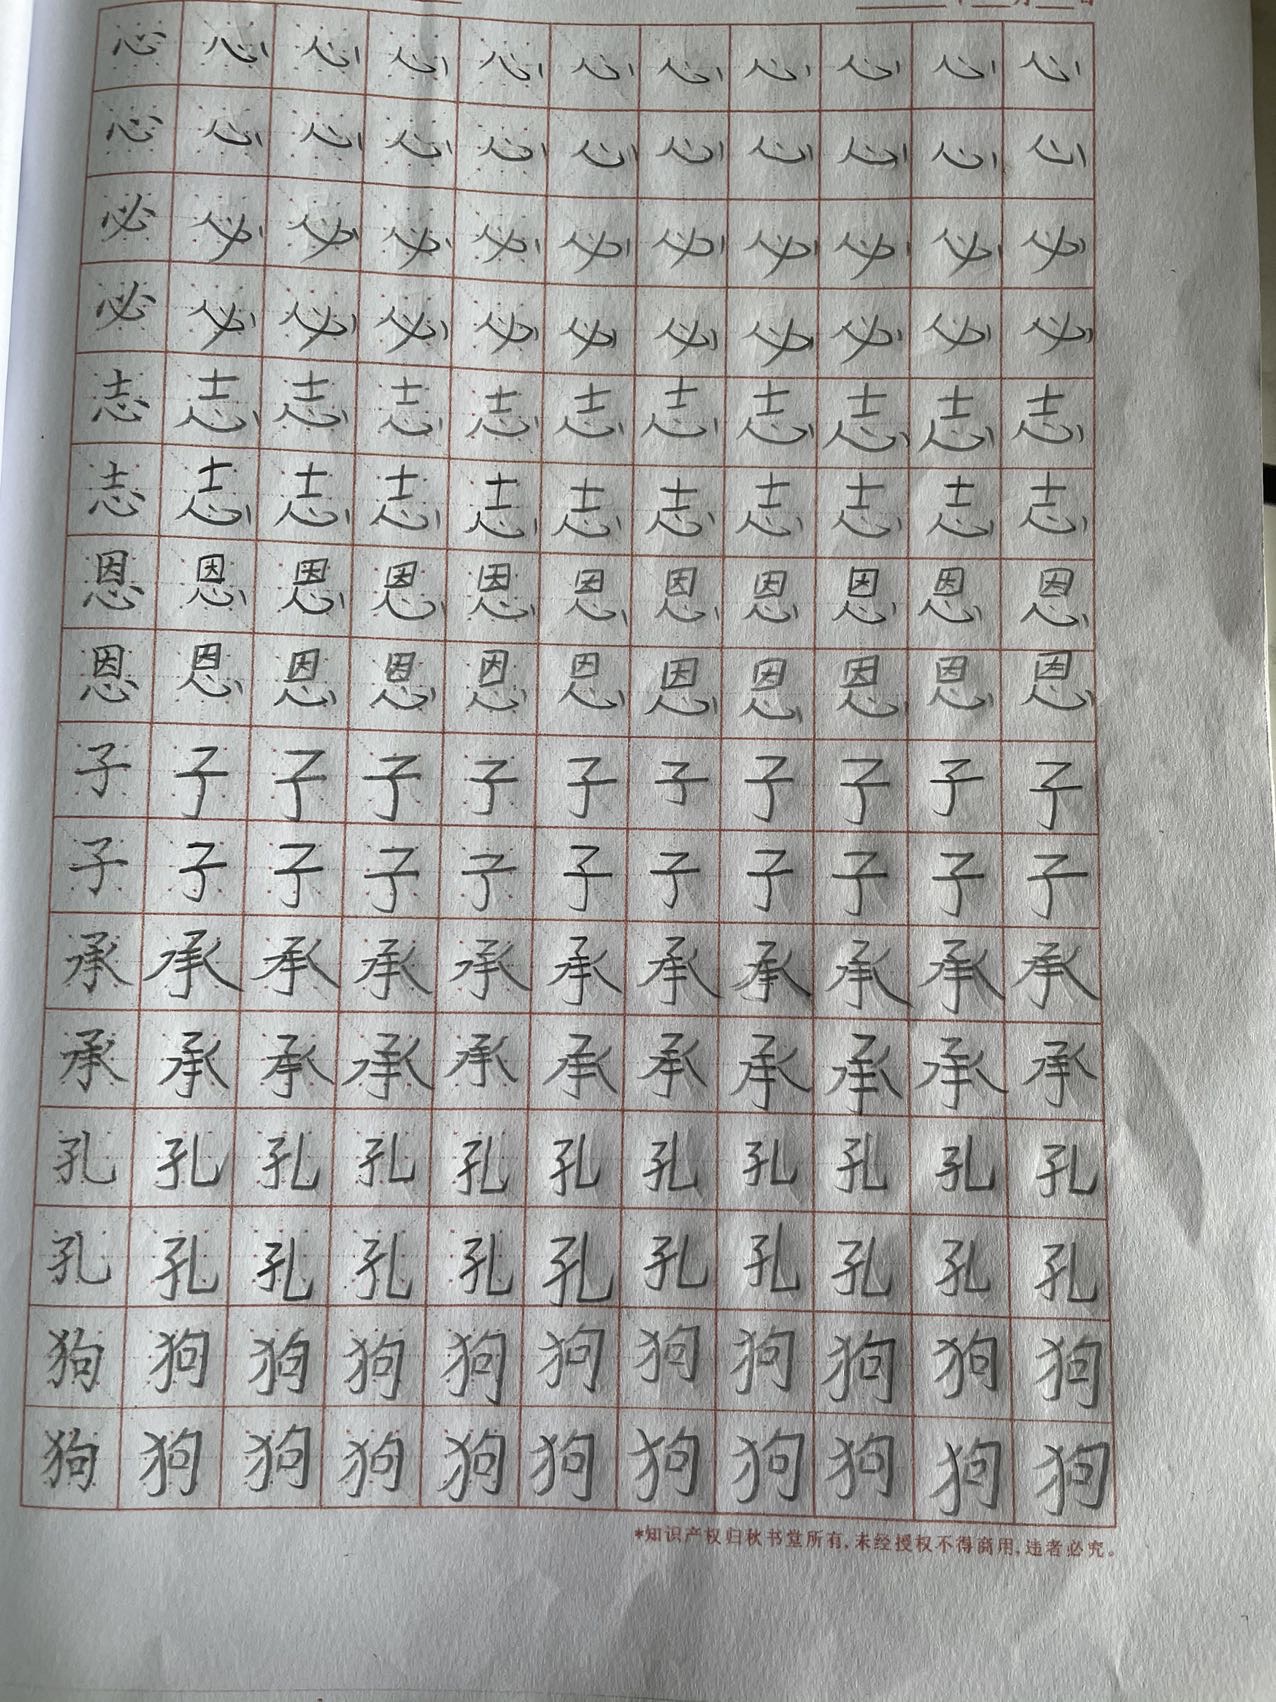 心心心心心心心心心心心
心心心心心心心心心心心
必必必必必必必必必必必
必必必必必必必必必必必
志志志志志志志志志志志
志志志志志志志志志志志
恩恩恩恩恩恩恩恩恩恩恩
恩恩恩恩恩恩恩恩恩恩恩
子子子子子子子子子子子
子子子子子子子子子子子
承承承承承承承承承承承
承承承承承承承承承承承
孔孔孔孔孔孔孔孔孔孔孔
孔孔孔孔孔孔孔孔孔孔孔
狗狗狗狗狗狗狗狗狗狗狗
狗狗狗狗狗狗狗狗狗狗狗
*知识产权归秋书堂所有,未经授权不得商用,违者必究。